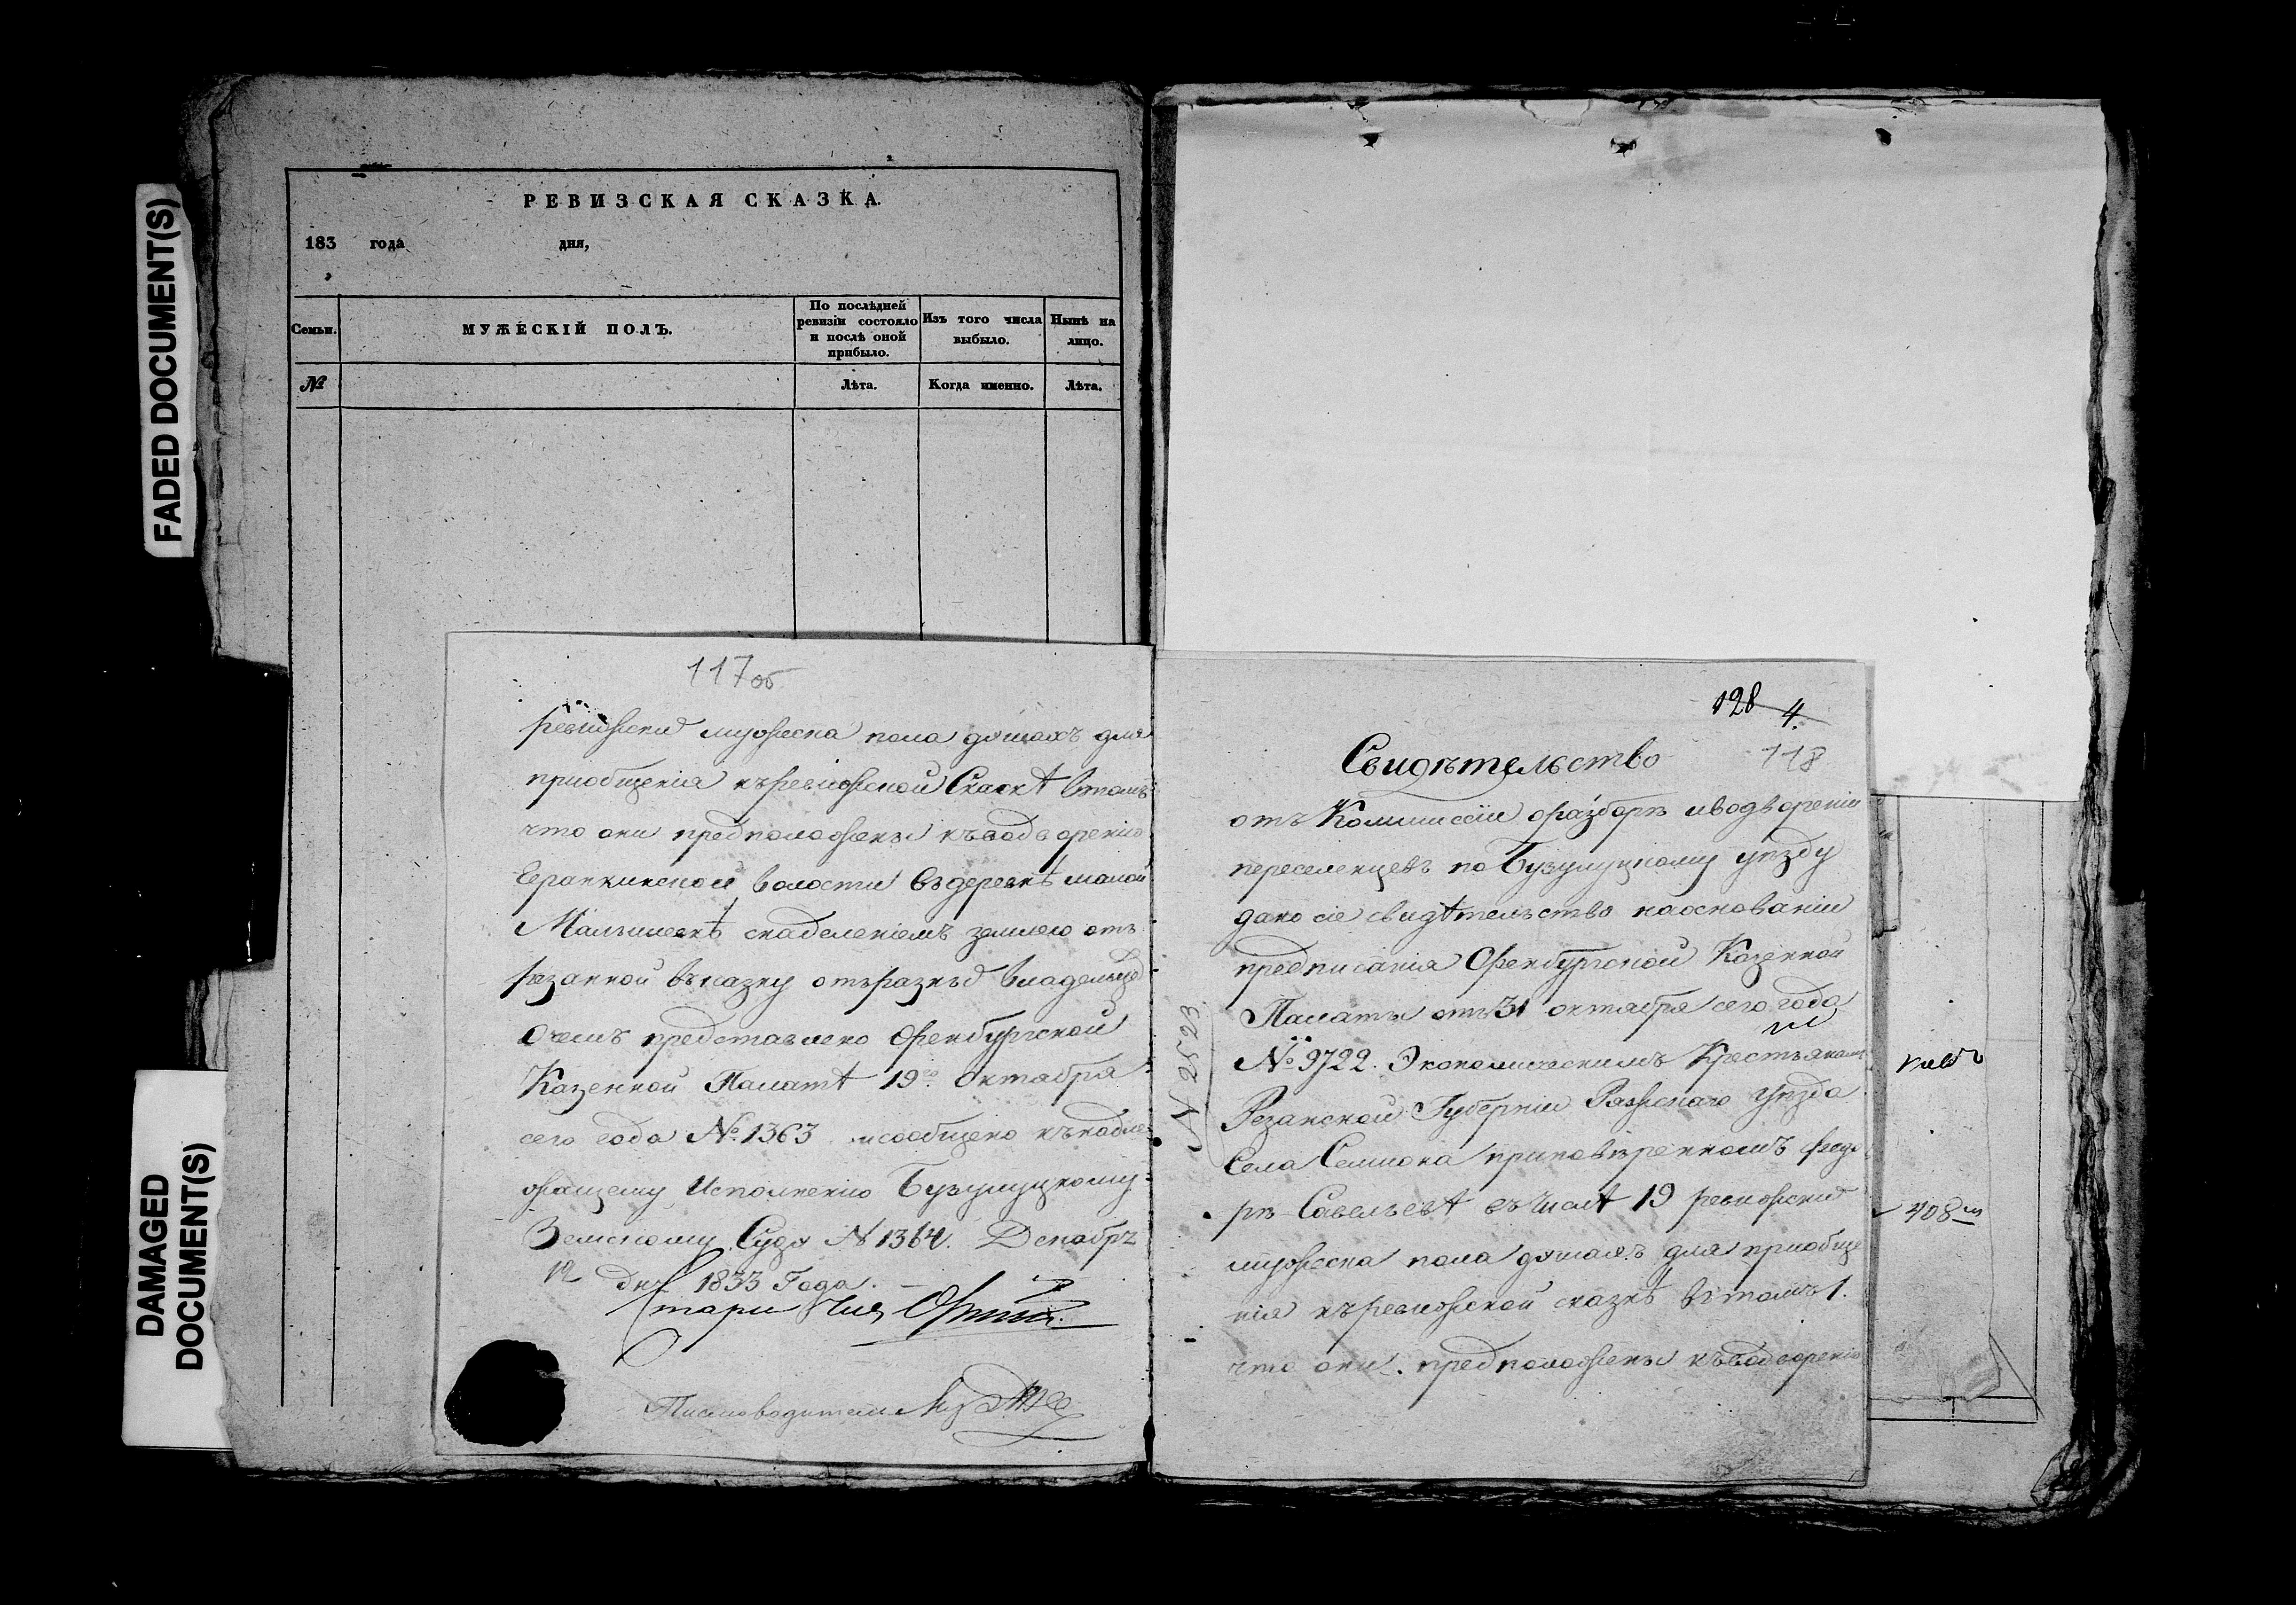 FADED DOCUMENT(S)
DAMAGED
DOCUMENT(S)
РЕВИЗСКАЯ СКАЗКА.
183 года дня,
Семьи.
МУЖЕСКІЙ ПОЛЪ.
По послѣдней
ревизіи состояло
и послѣ оной
прибыло.
Изъ того числа
выбыло.
Нынѣ на
лицо.
№
Лѣта.
Когда именно.
Лѣта.
117об
ревижски мужеска пола душахъ для
приобщенія къ ревижской Скаскѣ втомъ
что они предположены къ водворенію
волости въ деревнѣ малой
Малышевкѣ снаделеніемъ землею отъ
рѣзанной въ казну отъ разныхъ владельцовъ
о чемъ представлено Оренбургской
Казенной Палатѣ 19го Октября
сего года №. 1363 и сообщено къ надле
жащему Исполненію Бузулуцкому
Земскому Суду № 1364. Декабря
12 дня 1833 Года.
Писмоводитель
128 4.
118
Свидѣтельство
отъ Коммиссіи о разборѣ и водвореніи
переселенцевъ по Бузулуцкому уѣзду
дано сіе свидѣтельство на основаніи
предписанія Оренбургской Казенной
Палаты отъ 31 октября сего года
№ 9722. Экономическимъ Крестьянамъ
Резанской Губерніи Ряжскаго Уѣзда
Села Семиона приповѣренномъ Федо
рѣ Савельевѣ въ числѣ 19 ревижски
мужеска пола душахъ для приобще
нія къ ревижской сказкѣ втомъ 1.
что они предположены къ водворенію
N 2523
408